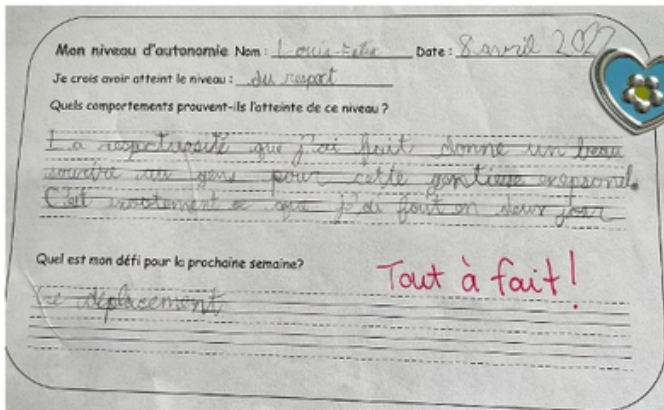 Mon niveau d'autonomie Nom : Louis- Date : 8 avril 2022
Je crois avoir atteint le niveau : du respect
Quels comportements prouvent-ils l'atteinte de ce niveau ?
La respectuosité que j'ai fait donne un beau
sourire au gens pour cette
C'est exactement ce que j'ai fait en deux jour
Quel est mon défi pour la prochaine semaine?
Tout à fait!
Le déplacement